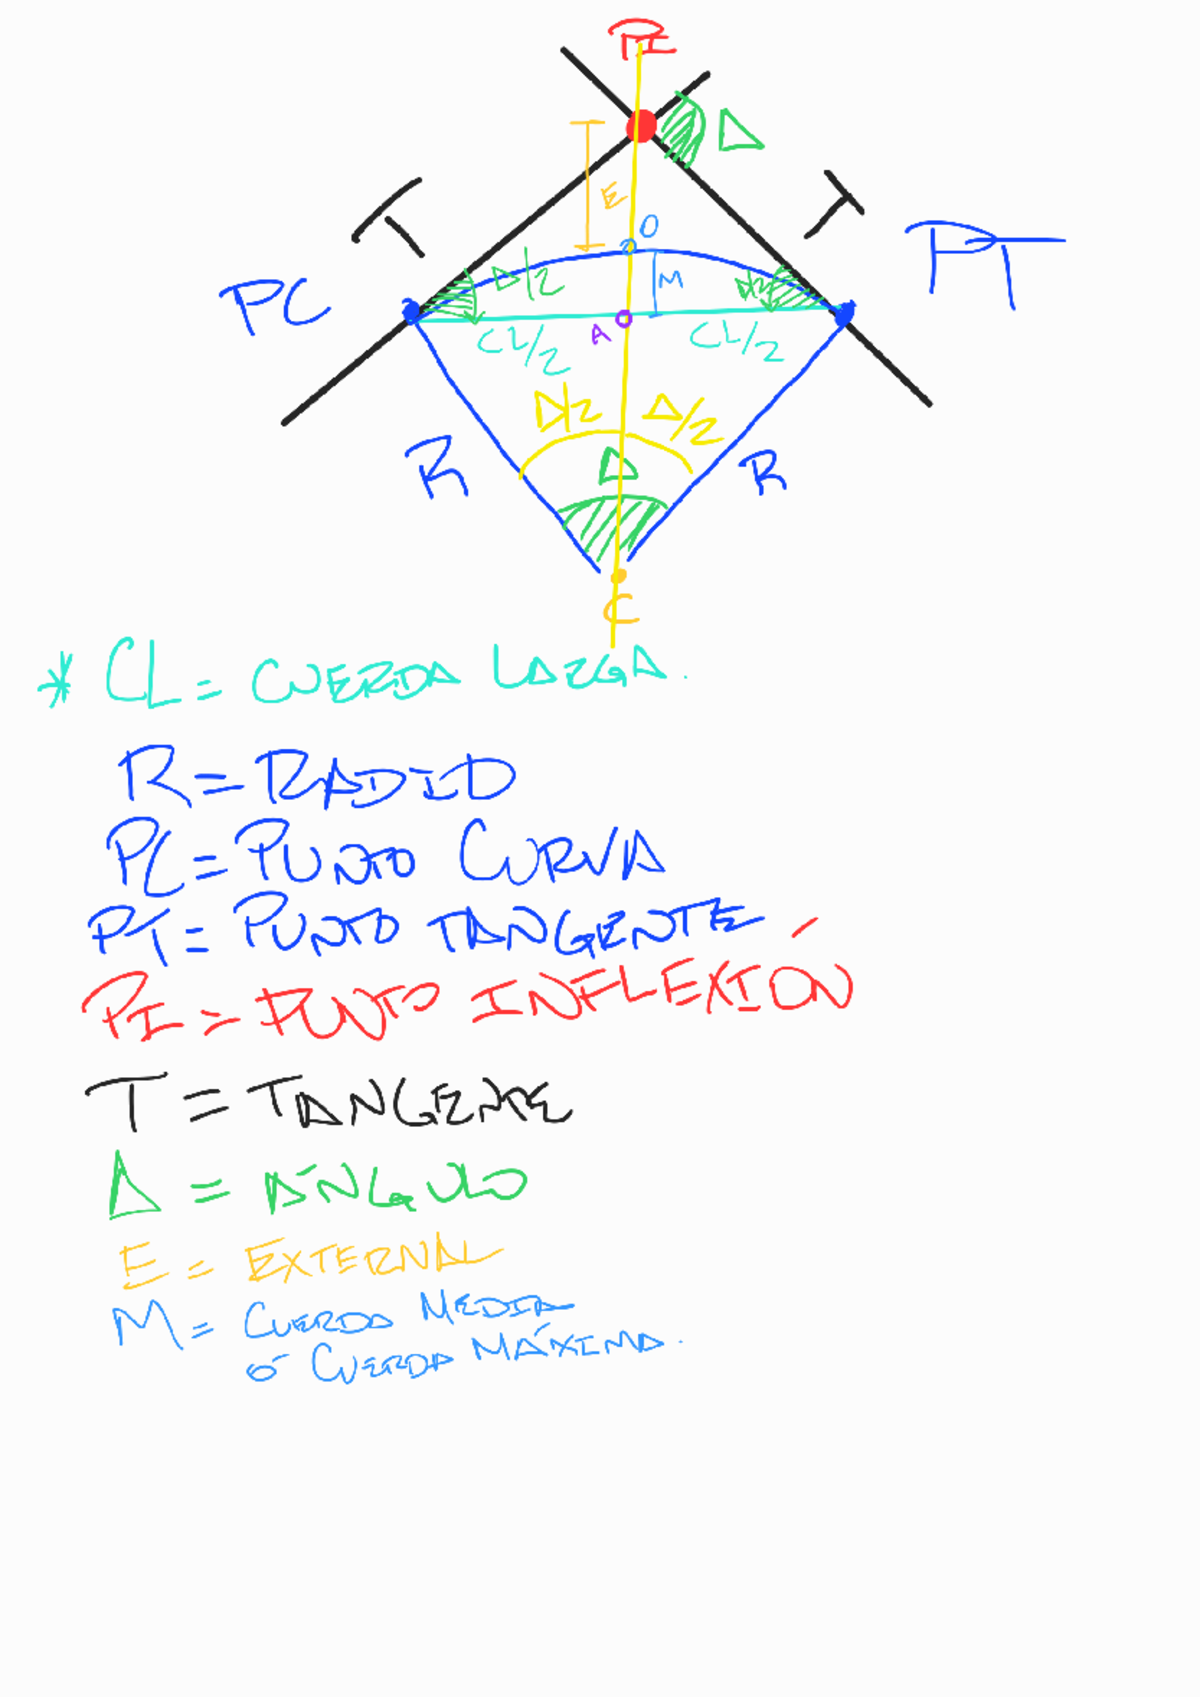 PI
Δ
T
E
T
O
PT
PC
Δ/2
M
Δ/2
A
CL/2
CL/2
Δ/2
Δ/2
R
Δ
R
C
* CL = CUERDA LARGA.
R = RADIO
PC = PUNTO CURVA
PT = PUNTO TANGENTE
PI = PUNTO INFLEXIÓN
T = TANGENTE
Δ = ÁNGULO
E = EXTERNAL
M = CUERDA MEDIA
ó CUERDA MÁXIMA.